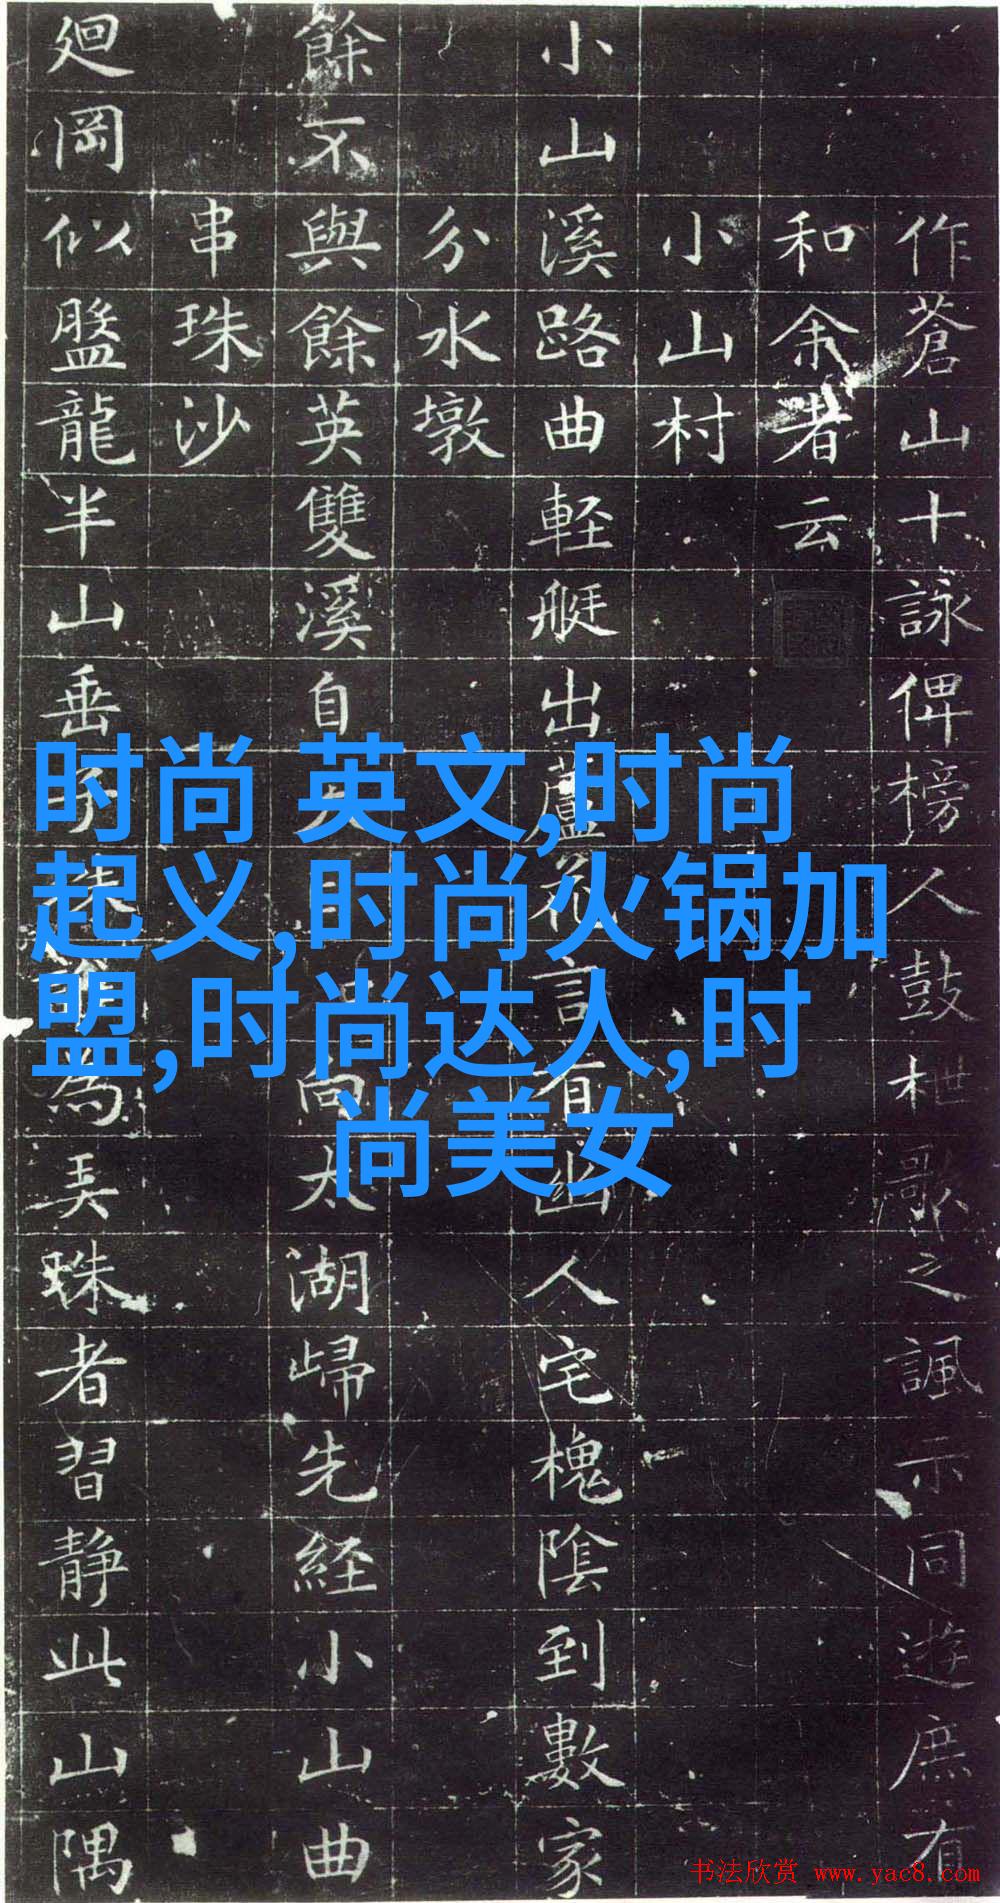 作蒼山十詠俾榜人鼓枻歌之諷示同遊庶有
和余者云
小山村
小山溪路曲軽艇出蘆花言有幽人宅槐陰到數家
分水墩
餘不與餘英雙溪自向太湖歸先経小山曲
串珠沙
廻岡似盤龍半山垂子珠為弄珠者習静此山隅
时尚 英文,时尚
起义,时尚火锅加
盟,时尚达人,时
尚美女
书法欣赏 www.yac8.com